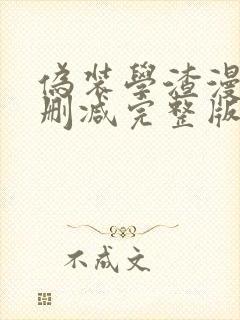 偽裝學渣漫
刪減完整版
不成文